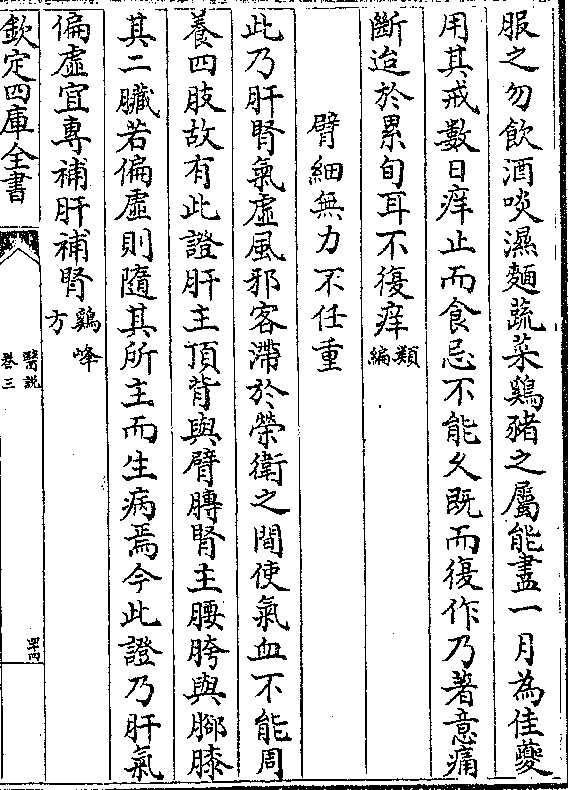 服之勿飲酒啖濕麵蔬菜鷄豬之屬能盡一月為佳夔
用其戒數日痒止而食忌不能久既而復作乃著意痛
斷迨於累旬耳不復痒類編
臂細無力不任重
此乃肝腎氣虛風邪客滯於榮衛之間使氣血不能周
養四肢故有此證肝主項背與臂膊腎主腰胯與腳膝
其二臟若偏虛則隨其所主而生病焉今此證乃肝氣
偏虛宜專補肝補腎鷄峰方
欽定四庫全書
醫說
卷三
四十四